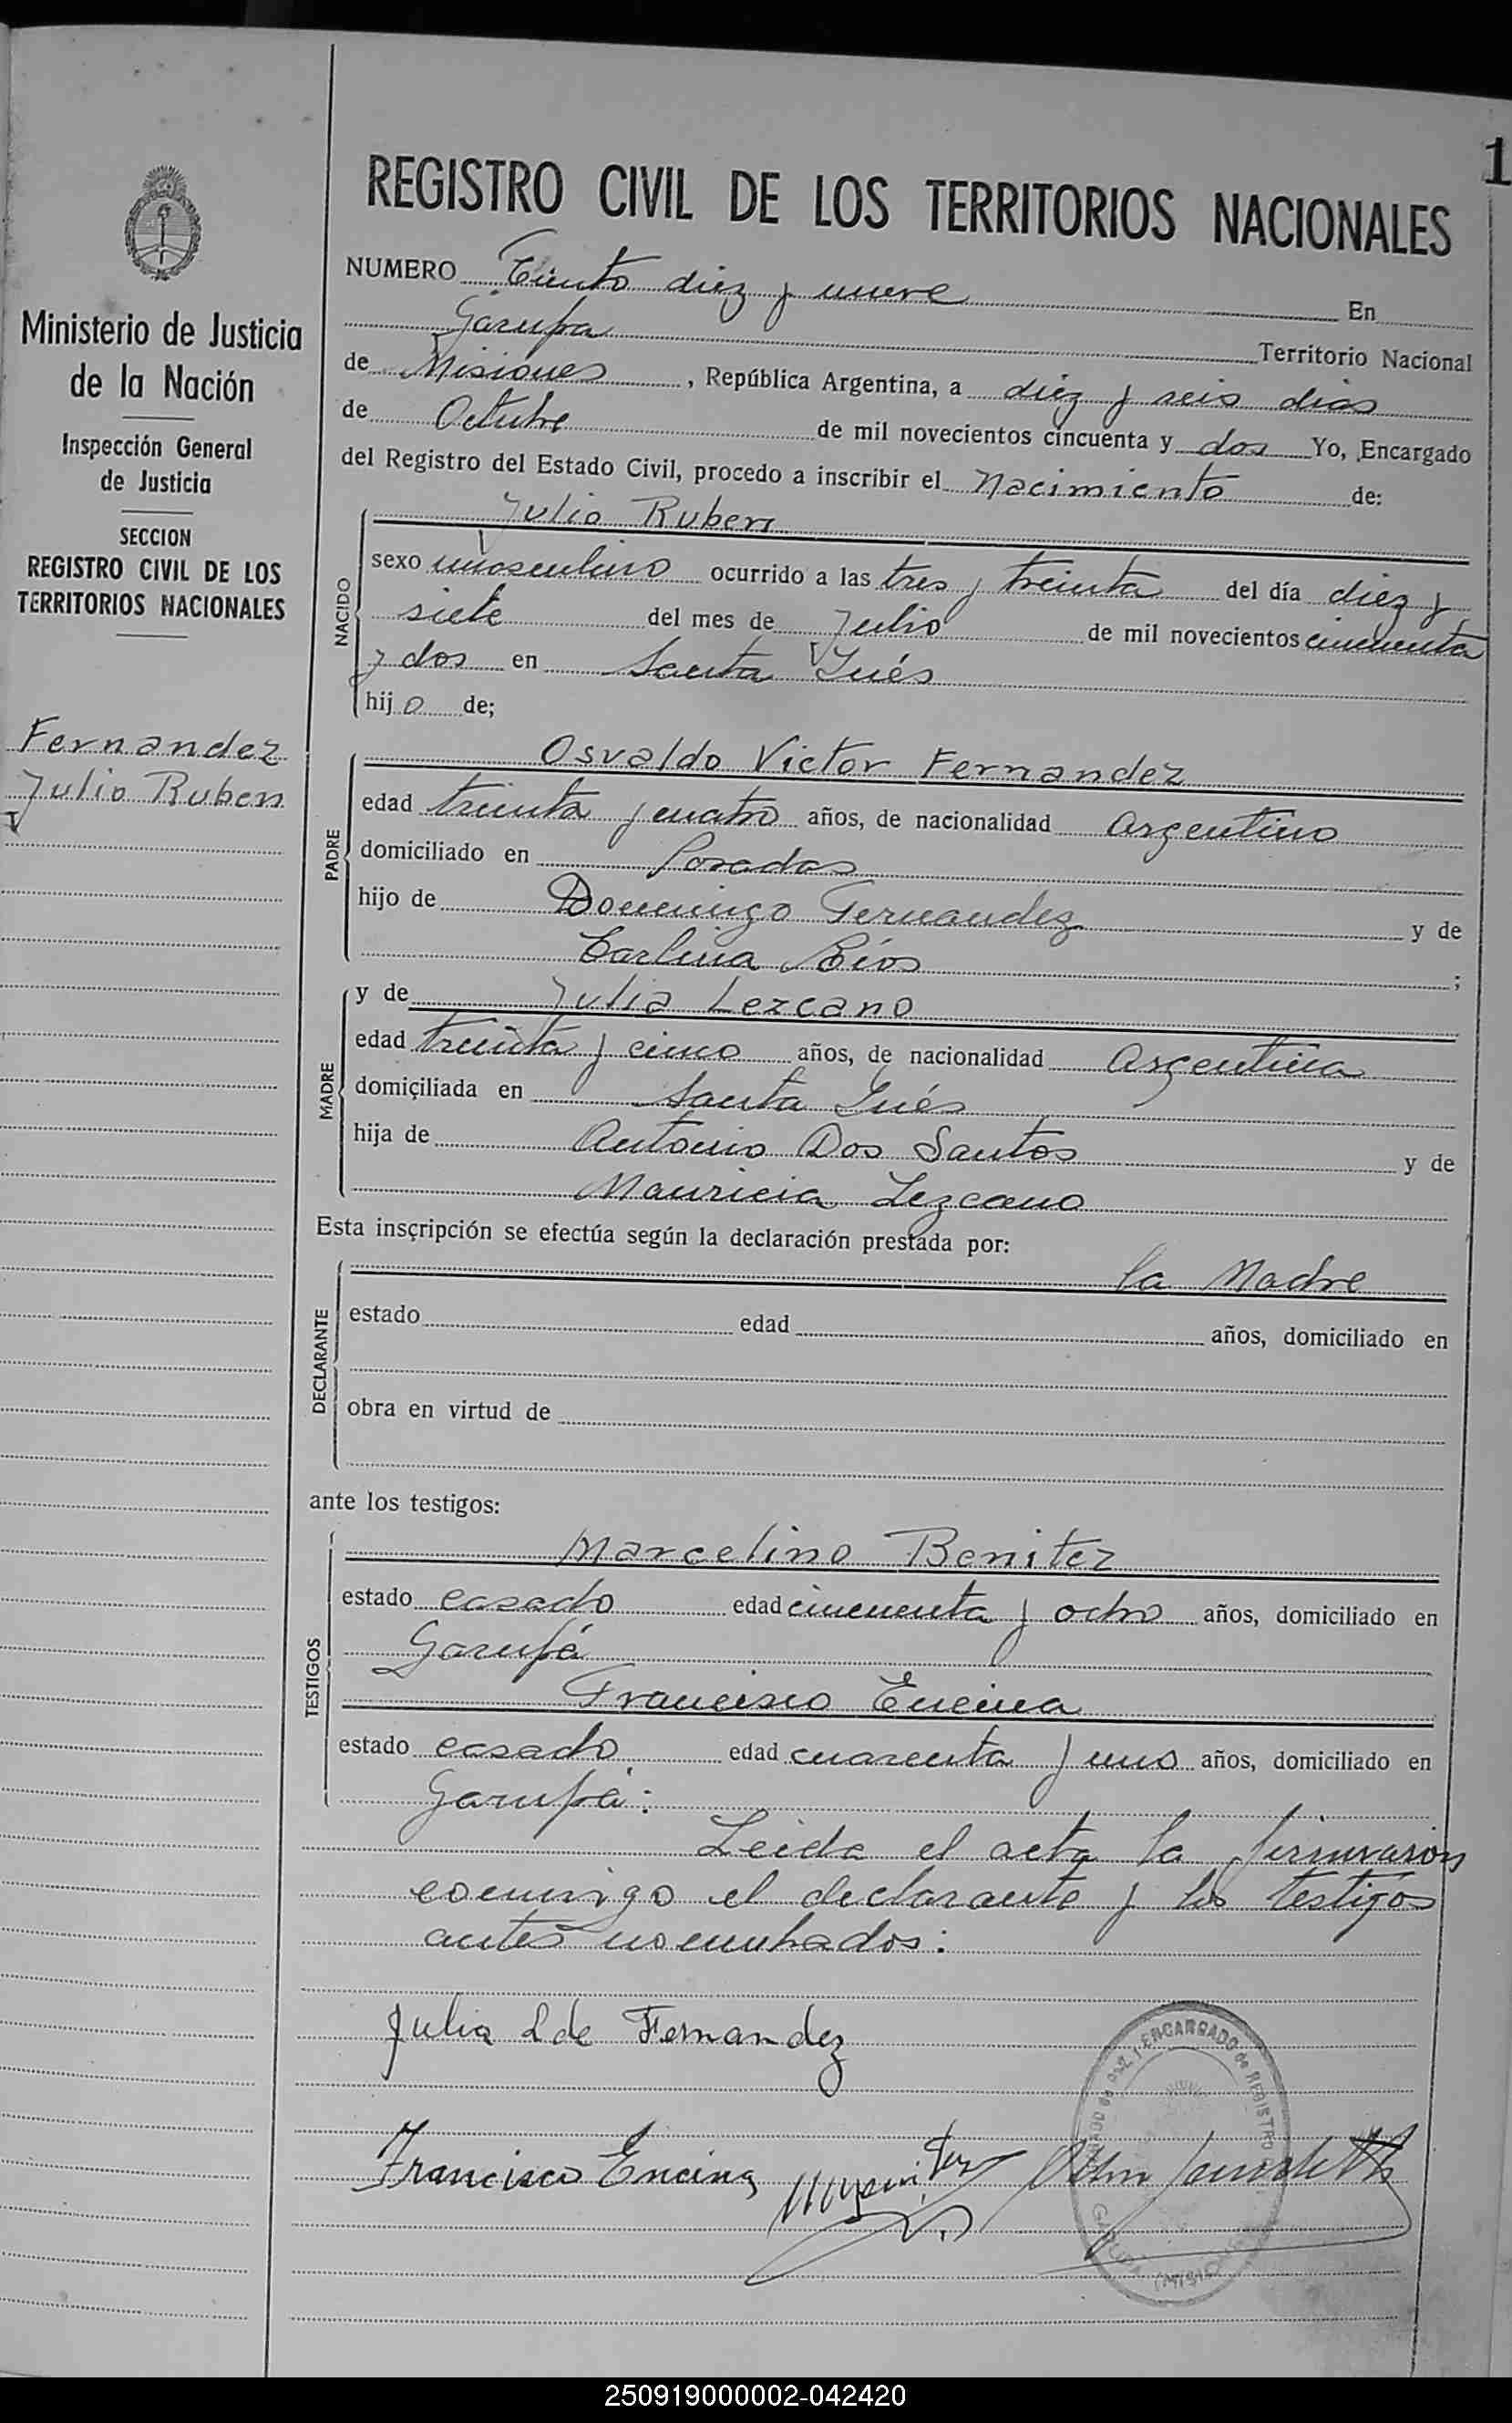 1
REGISTRO CIVIL DE LOS TERRITORIOS NACIONALES
Ministerio de Justicia
de la Nación
Inspección General
de Justicia
SECCION
REGISTRO CIVIL DE LOS
TERRITORIOS NACIONALES
Fernandez
Julio Ruben
NUMERO Ciento diez y nueve En
Garupa Territorio Nacional
de Misiones, República Argentina, a diez y seis dias
de Octubre de mil novecientos cincuenta y dos Yo, Encargado
del Registro del Estado Civil, procedo a inscribir el Nacimiento de:
NACIDO
Julio Ruben
sexo masculino ocurrido a las tres y treinta del día diez y
siete del mes de Julio de mil novecientos cincuenta
y dos en Santa Inés
hijo de;
PADRE
Osvaldo Victor Fernandez
edad treinta y cuatro años, de nacionalidad Argentino
domiciliado en Posadas
hijo de Domingo Fernandez y de
Carlina Ríos ;
MADRE
y de Julia Lezcano
edad treinta y cinco años, de nacionalidad Argentina
domiciliada en Santa Inés
hija de Antonio Dos Santos y de
Mauricia Lezcano
Esta inscripción se efectúa según la declaración prestada por:
DECLARANTE
la Madre
estado edad años, domiciliado en
obra en virtud de
ante los testigos:
TESTIGOS
Marcelino Benitez
estado casado edad cincuenta y ocho años, domiciliado en
Garupá
Francisco Encina
estado casado edad cuarenta y uno años, domiciliado en
Garupá:
Leida el acta la firmaron
conmigo el declarante y los testigos
antes nombrados:
Julia L de Fernandez
ENCARGADO de REGISTRO
Francisco Encina
250919000002-042420